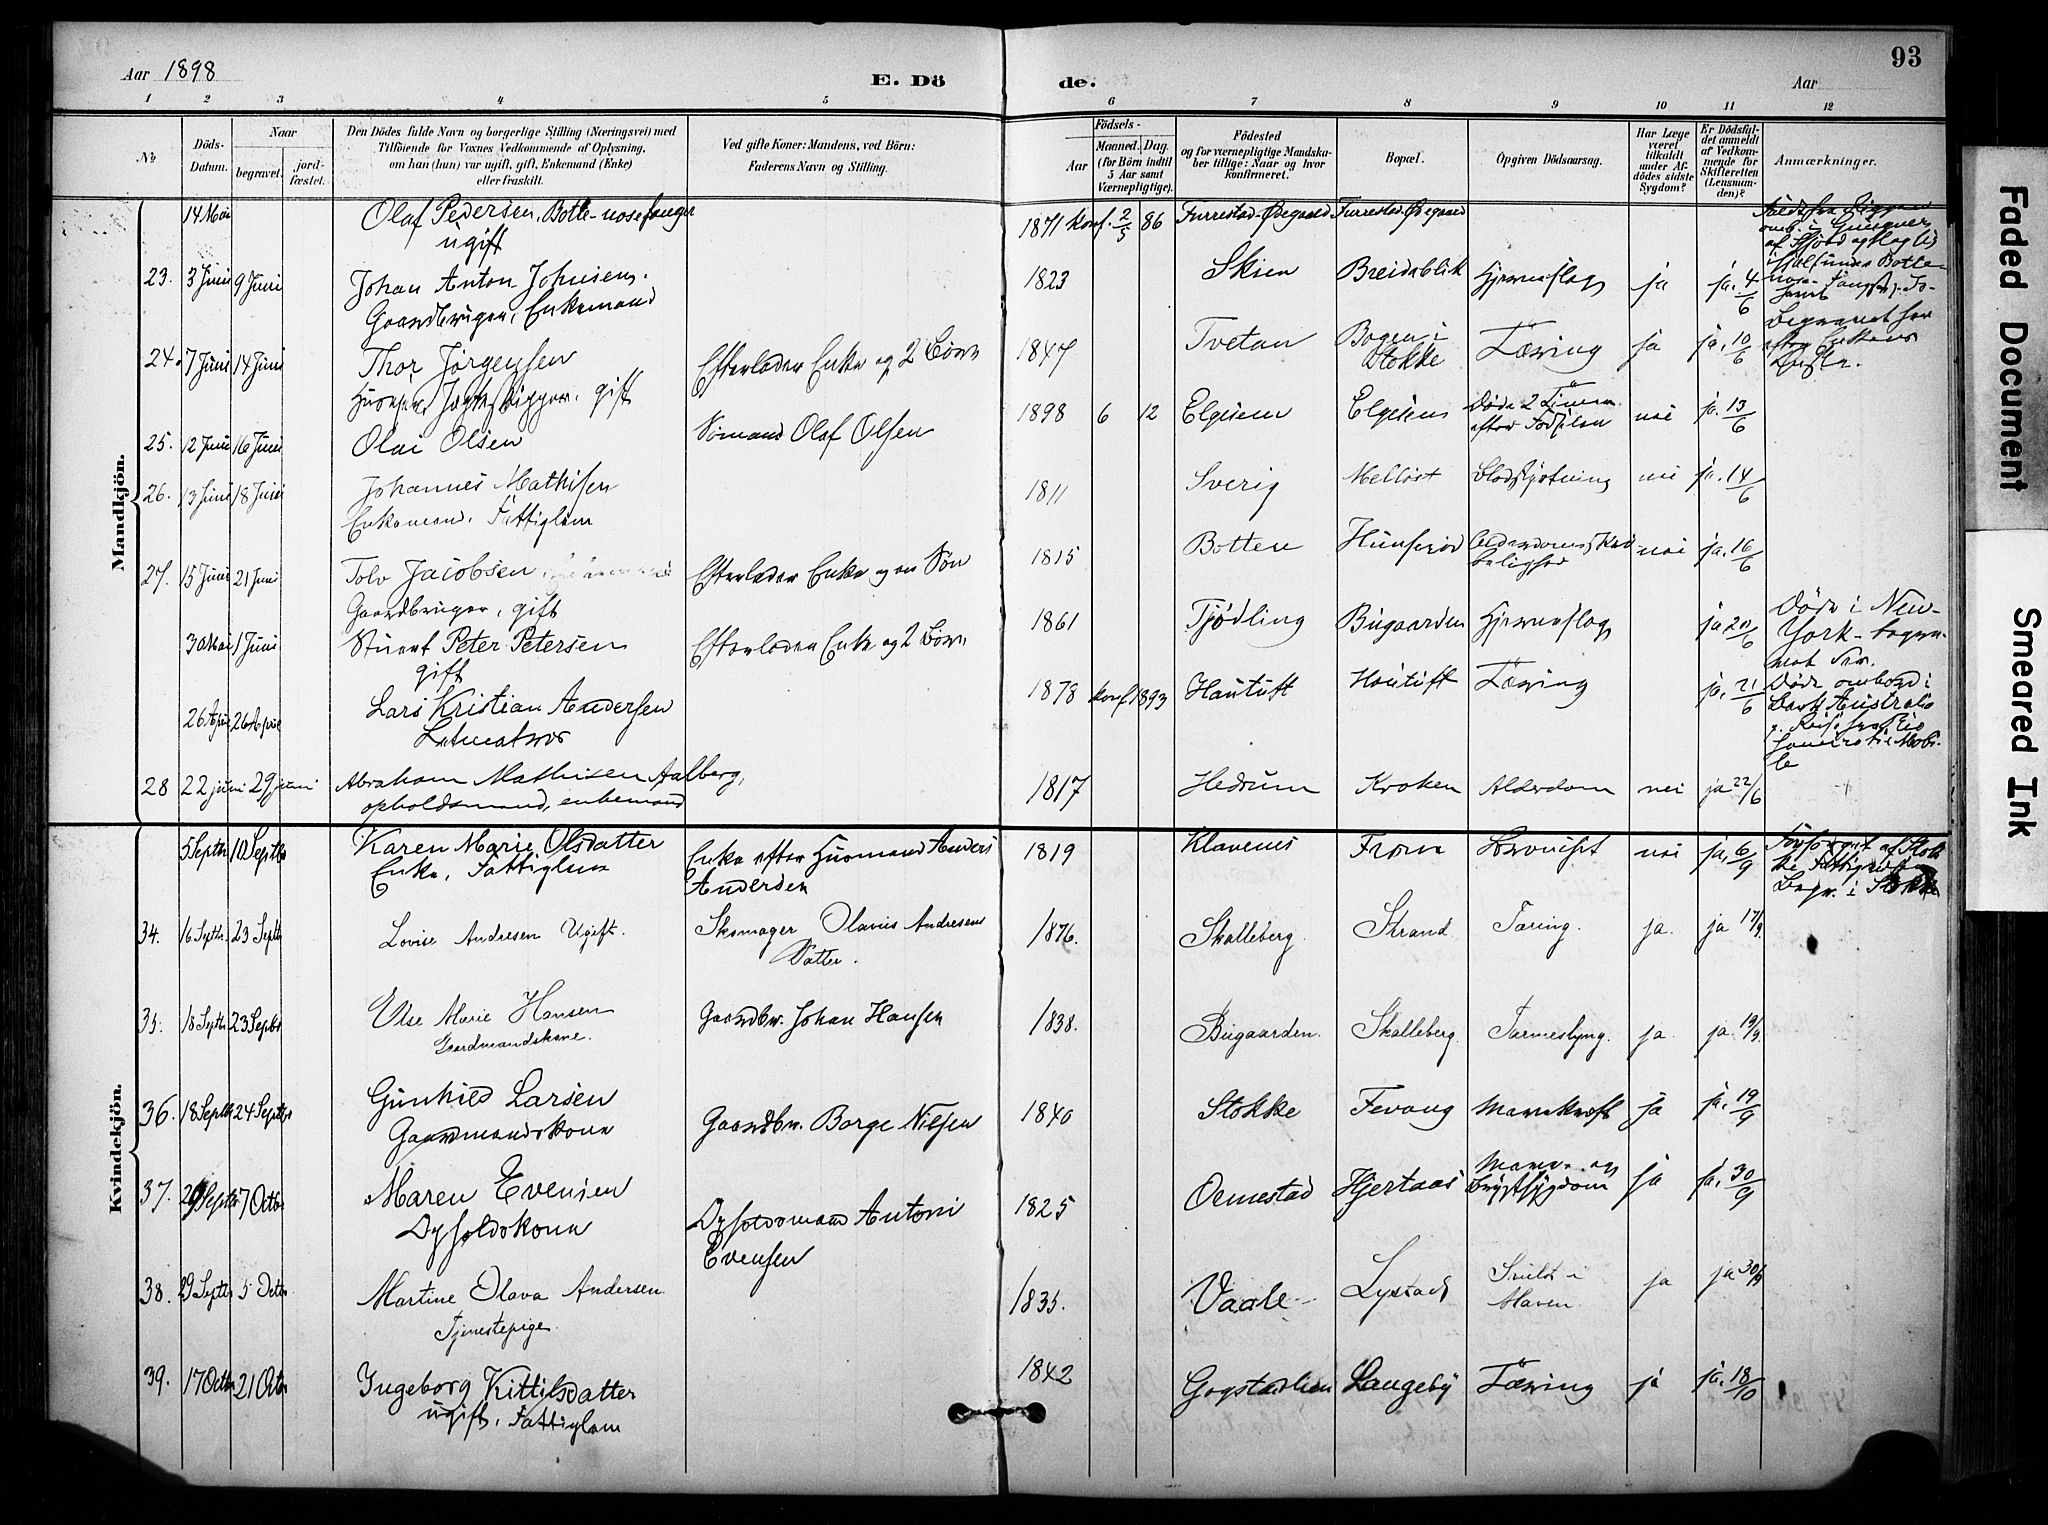 93
Aar 1898
E. Dö
de.
Aar
1 2 3 4 5 6 7 8 9 10 11 12
No
Döds-
Datum.
Naar
begravet.
jord-
fæstet.
Den Dödes fulde Navn og borgerlige Stilling (Næringsvei) med
Tilföiende for Voxnes Vedkommende af Oplysning,
om han (hun) var ugift, gift, Enkemand (Enke)
eller fraskilt.
Ved gifte Koner: Mandens, ved Börn:
Faderens Navn og Stilling.
Födsels-
Aar
Maaned.
Dag.
(for Börn indtil
5 Aar samt
Værnepligtige).
Födested
og for værnepligtige Mandska-
ber tillige: Naar og hvor
konfirmeret.
Bopæl.
Opgiven Dödsaarsag.
Har Læge
været
tilkaldt
under Af-
dödes sidste
Sygdom?
Er Dödsfal-
det anmeldt
af Vedkom-
mende for
Skifteretten
(Lensman-
den)?
Anmærkninger.
Mandkjön.
14 Mai Olaf Pedersen, Botte-nosefanger 1871 Konf. 2/5 86 Furrestad-Ødegaard Furrestad-Ødegaard
ugift
23. 3 Juni 9 Juni Johan Anton Johnsen. 1823 Skien Breidablik Hjerneslag ja ja. 4/6
Gaardbruger, Enkemand
24. 7 Juni 14 Juni Thor Jørgensen Efterlader Enke og 2 Børn 1847 Tvetan Bogen i Stokke Tæring ja ja. 10/6
gift
25. 12 Juni 16 Juni Olai Olsen Sømand Olaf Olsen 1898 6 12 Elgesem Elgesem Døde 2 Timer
efter Fødselen nei ja. 13/6
26. 13 Juni 18 Juni Johannes Mathisen 1811 Sverig Melløst Blodstyrtning nei ja. 14/6
Enkemand. Fattiglem
27. 15 Juni 21 Juni Tolv Jacobsen Efterlader Enke og en Søn 1815 Botten Hunserød nei ja. 16/6
Gaardbruger, gift
30 Mai 1 Juni Stuert Peter Petersen Efterlader Enke og 2 Børn 1861 Tjødling Bugaarden Hjerneslag ja 20/6 Døde i New-
York-begra-
vet der.
gift
26 April 26 April Lars Kristian Andersen 1878 Konf. 1893 Hautuft Hautuft Tæring ja. 21/6 Døde ombord i
Bark Australia
Letmatros
28 22 juni 29 juni Abraham Mathisen Aalberg, 1817 Hedrum Kroken Alderdom nei ja 22/6
opholdsmand, enkemand
Kvindekjön.
5 Septbr 10 Septbr Karen Marie Olsdatter Enke efter Husmand Anders
Andersen 1819 Klavenes nei ja. 6/9
Enke, Fattiglem
34. 16 Septbr. 23 Septb Lovise Andresen Ugift. Skomager Olavus Andresens
Datter. 1876. Skalleberg. Strand Tæring. ja. ja 17/9.
35. 18 Septbr 23 Septbr Else Marie Hansen Gaardbr. Johan Hansen 1838. Bugaarden. Skalleberg. Tarmeslyng. ja. ja. 19/9
Gaardmandskone.
36. 18 Septbr 24 Septbr Gunhild Larsen Gaardbr. Borge Nilsen 1840 Stokke Fevang Mavekræft ja ja. 19/9
Gaardmandskone
37. Septbr 7 Octbr Maren Evensen Opholdsmand Antoni
Evensen 1825 Ormestad Hjertaas Mave- og
Brystsygdom ja ja. 30/9
Opholdskone
38. 29 Septbr 5 Octbr Martine Olava Andersen 1835. Vaale Lystad Svulst i
Maven. ja ja 30/9
Tjenestepige.
39. 17 Octbr 21 Octbr Ingeborg Kittilsdatter 1842 Gogstadlien Langeby Tæring ja ja. 18/10
ugift. Fattiglem
Faded Document
Smeared Ink